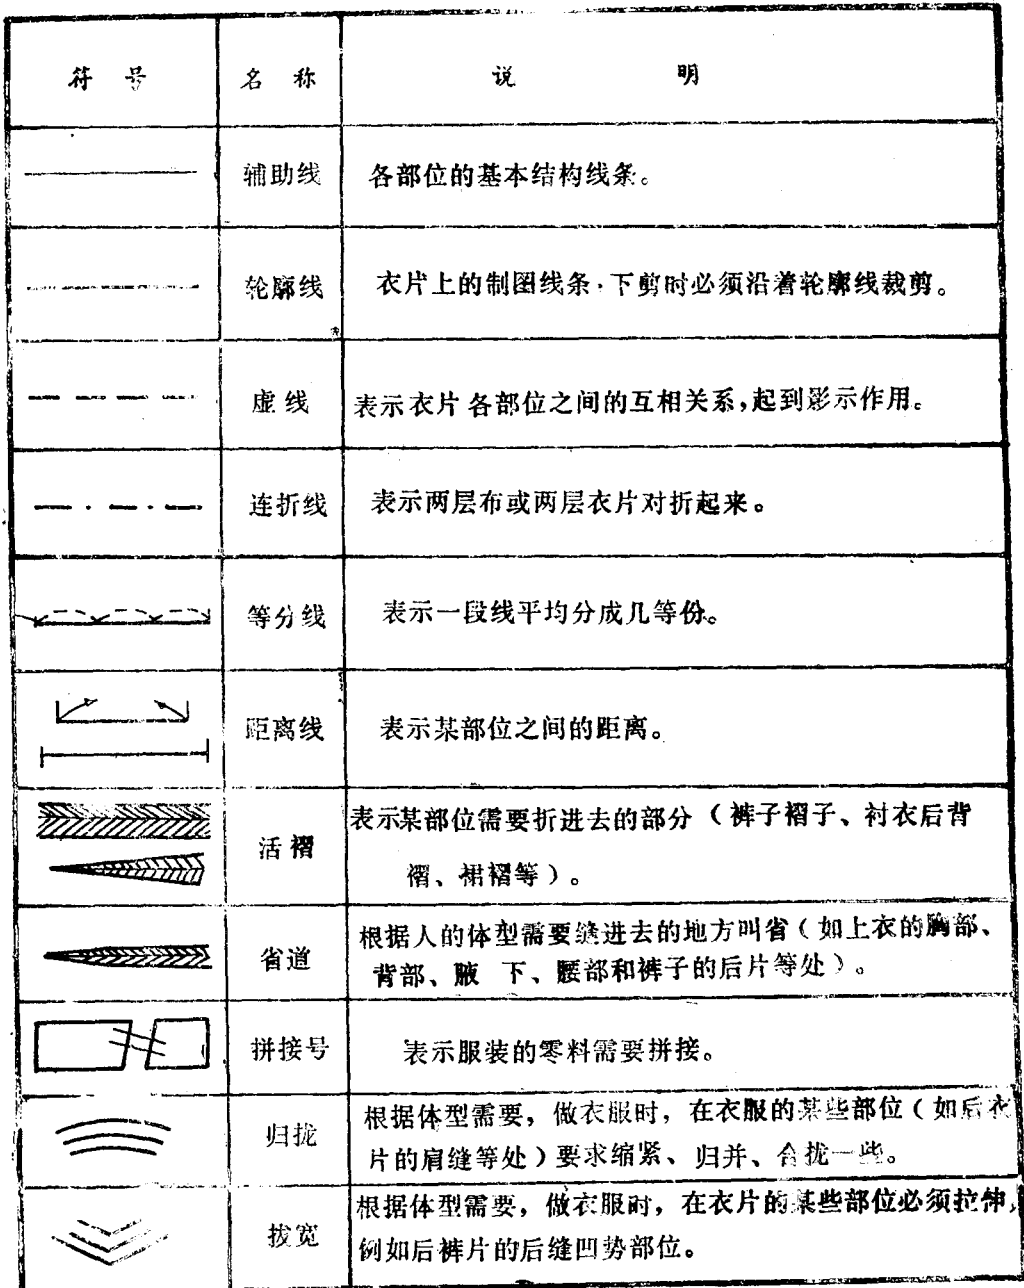 符 号 名 称 说 明
辅助线 各部位的基本结构线条。
轮廓线 衣片上的制图线条·下剪时必须沿着轮廓线裁剪。
虚线 表示衣片各部位之间的互相关系,起到影示作用。
连折线 表示两层布或两层衣片对折起来。
等分线 表示一段线平均分成几等份。
距离线 表示某部位之间的距离。
活褶 表示某部位需要折进去的部分（裤子褶子、衬衣后背
褶、裙褶等）。
省道 根据人的体型需要缝进去的地方叫省（如上衣的胸部、
背部、腋 下、腰部和裤子的后片等处）。
拼接号 表示服装的零料需要拼接。
归拢 根据体型需要，做衣服时，在衣服的某些部位（如后衣
片的肩缝等处）要求缩紧、归并、合拢一些。
拔宽 根据体型需要，做衣服时，在衣片的某些部位必须拉伸，
例如后裤片的后缝凹势部位。